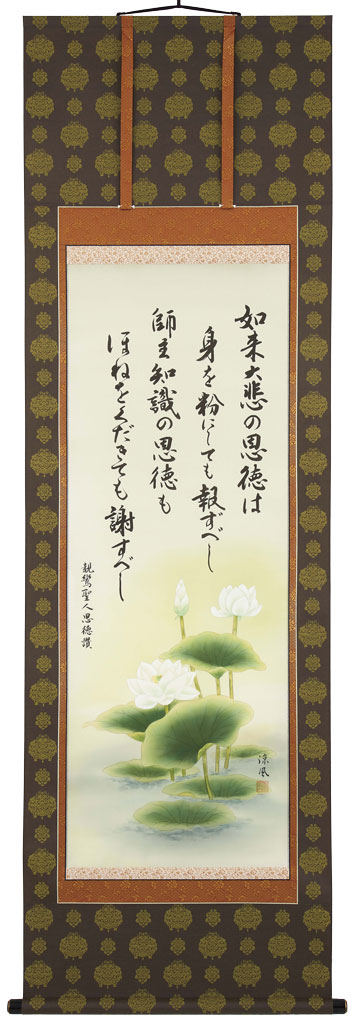 如来大悲の恩徳は
身を粉にしても報ずべし
師主知識の恩徳も
ほねをくだきても謝すべし
親鸞聖人恩徳讃
涼風